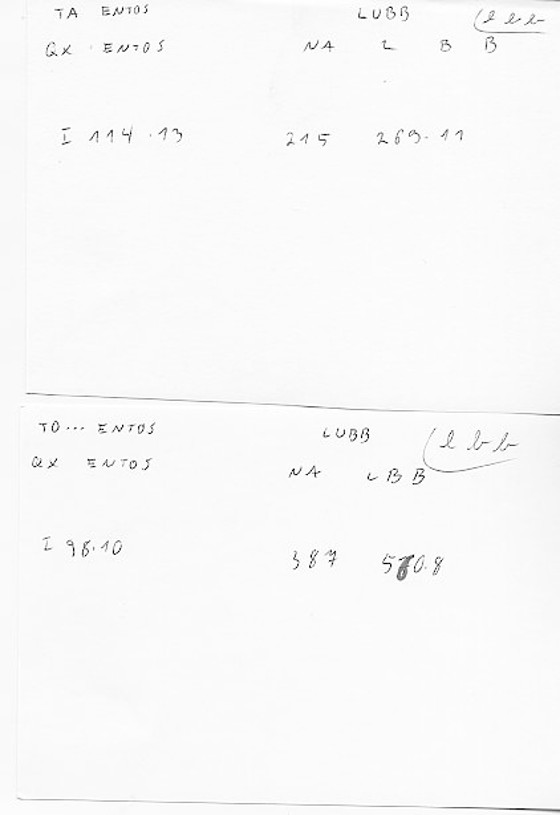 TA ENTOS LUBB
QX ENTOS NA L B B
I 114.13 215 269.11
TO... ENTOS LUBB l b b
QX ENTOS NA L B B
I 98.10 387 570.8